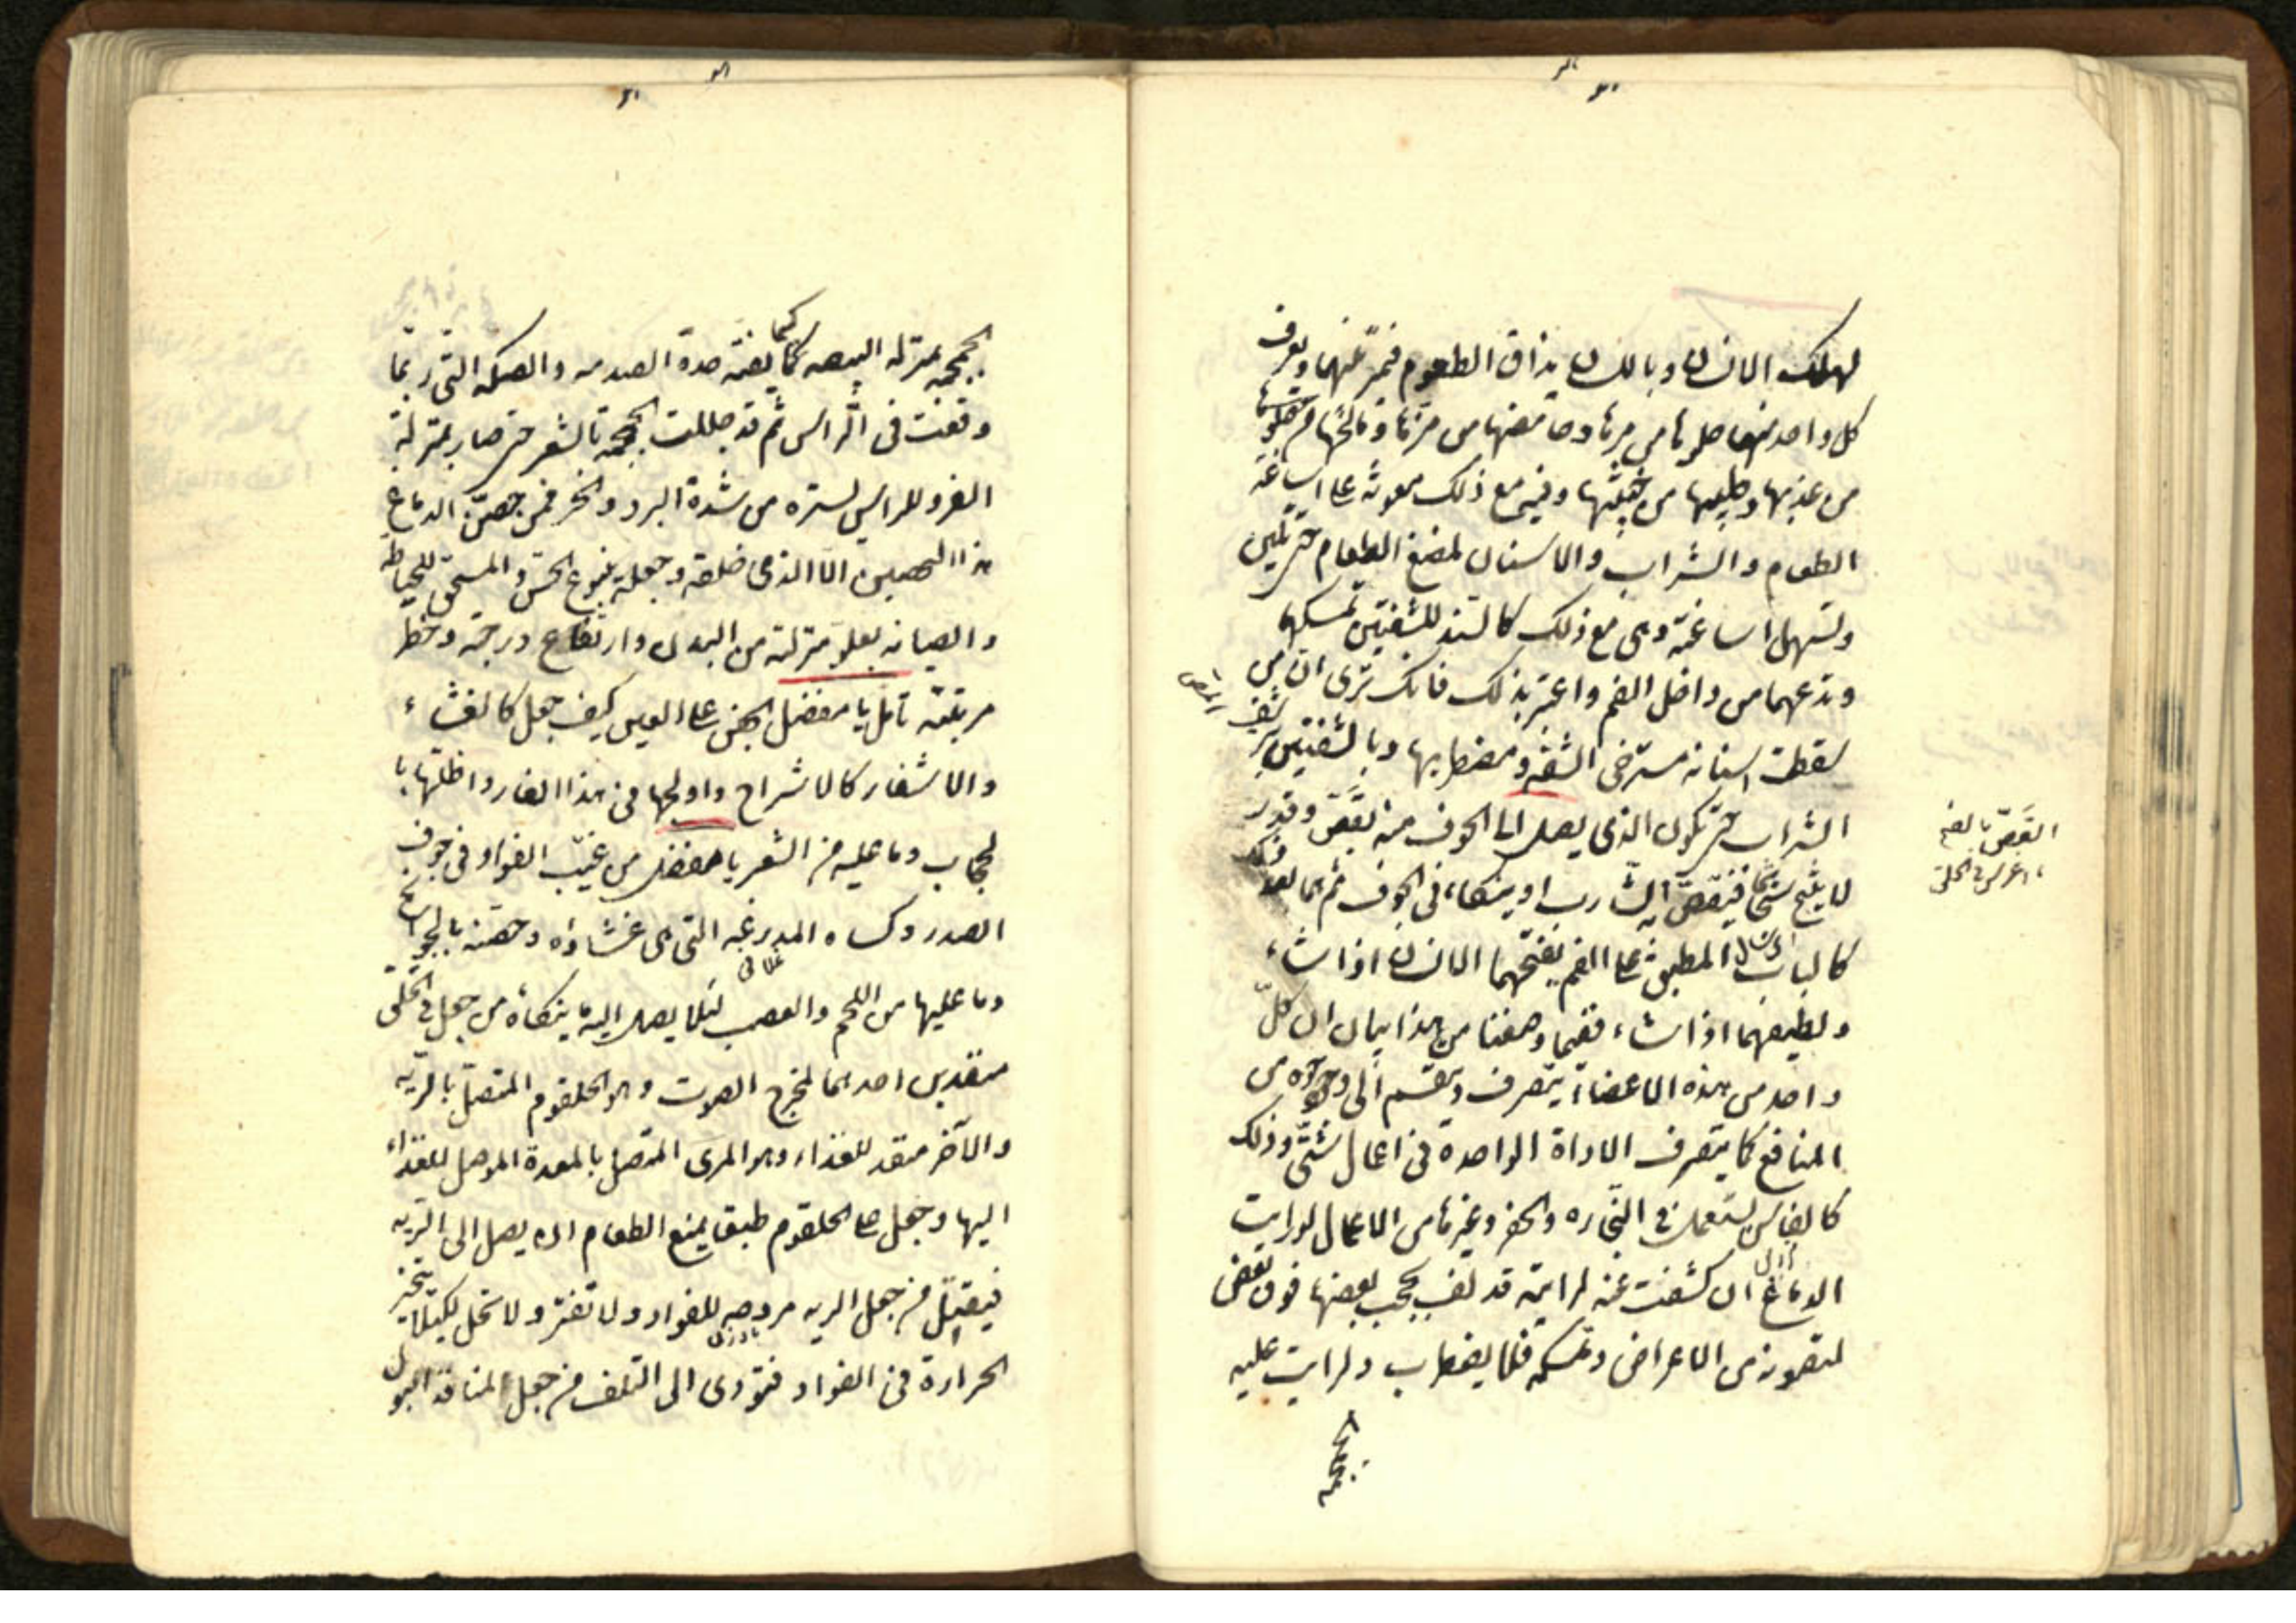 لهلك الانسان وباللسان يذاق الطعوم فيميز بينهما ويعرف
كل واحد منها حلوها من مرها وحامضها من مزها ومالحها من حلوها
من عذبها وطيبها من خبيثها وفيه مع ذلك معونة على اساغة
الطعام والشراب والاسنان لمضغ الطعام حتى يلين
وتسهل اساغته وهى مع ذلك كالسند للشفتين تمسكهما
وتدعمهما من داخل الفم واعتبر بذلك فانك ترى ان من
سقطت اسنانه مسترخى الشفة ومضطربها وبالشفتين يترشف
الشراب حتى يكون الذى يصل الى الجوف منه بقصد وقدر
لا يثج ثجا فيغص به الشارب او ينكاء فى الجوف ثم هما بعد ذلك
كالباب المطبق على الفم يفتحهما الانسان اذا شاء
ويطبقهما اذا شاء ففيما وصفنا من هذا بيان ان كل
واحد من هذه الاعضاء يتصرف وينقسم الى وجوه من
المنافع كما يتصرف الاداة الواحدة فى اعمال شتى وذلك
كالفاس يستعمل فى النجارة والحفر وغيرها من الاعمال لو رايت
الدماغ اذا كشفت عنه لرايته قد لف بحجب بعضها فوق بعض
لتصونه من الاعراض وتمسكه فلا يضطرب ولرايت عليه
الجمجمة
الجمجمة بمنزلة البيضة كيما يقيه هدة الصدمة والصكة التى ربما
وقعت فى الراس ثم قد جللت الجمجمة بالشعر حتى صار بمنزلة
الفرو للراس يستره من شدة البرد والحر فمن حصن الدماغ
هذا التحصين الا الذى خلقه وجعله ينبوع الحس والمستحق للحياطة
والصيانة بعلو منزلته من البدن وارتفاع درجته وخطر
مرتبته تامل يا مفضل الجفن على العين كيف جعل كالغشاء
والاشفار كالاشراج واولجها فى هذا الغار واظلتها با
لحجاب وما عليه من الشعر يا مفضل من غيب الفواد فى جوف
الصدر وكساه المدرعة التى هى غشاؤه وحصنه بالجوانح
وما عليها من اللحم والعصب لئلا يصل اليه ما ينكاه من جعل فى الحلق
منفذين احدهما لمخرج الصوت وهو الحلقوم المتصل بالرية
والآخر منفذ للغذاء وهو المرى المتصل بالمعدة الموصل للغذاء
اليها وجعل على الحلقوم طبقا يمنع الطعام ان يصل الى الرية
فيقتل من جعل الرية مروحة للفواد ولا تفتر ولا تخل لكيلا يتحيز
الحرارة فى الفواد فتؤدى الى التلف من جعل لمنافذ البول